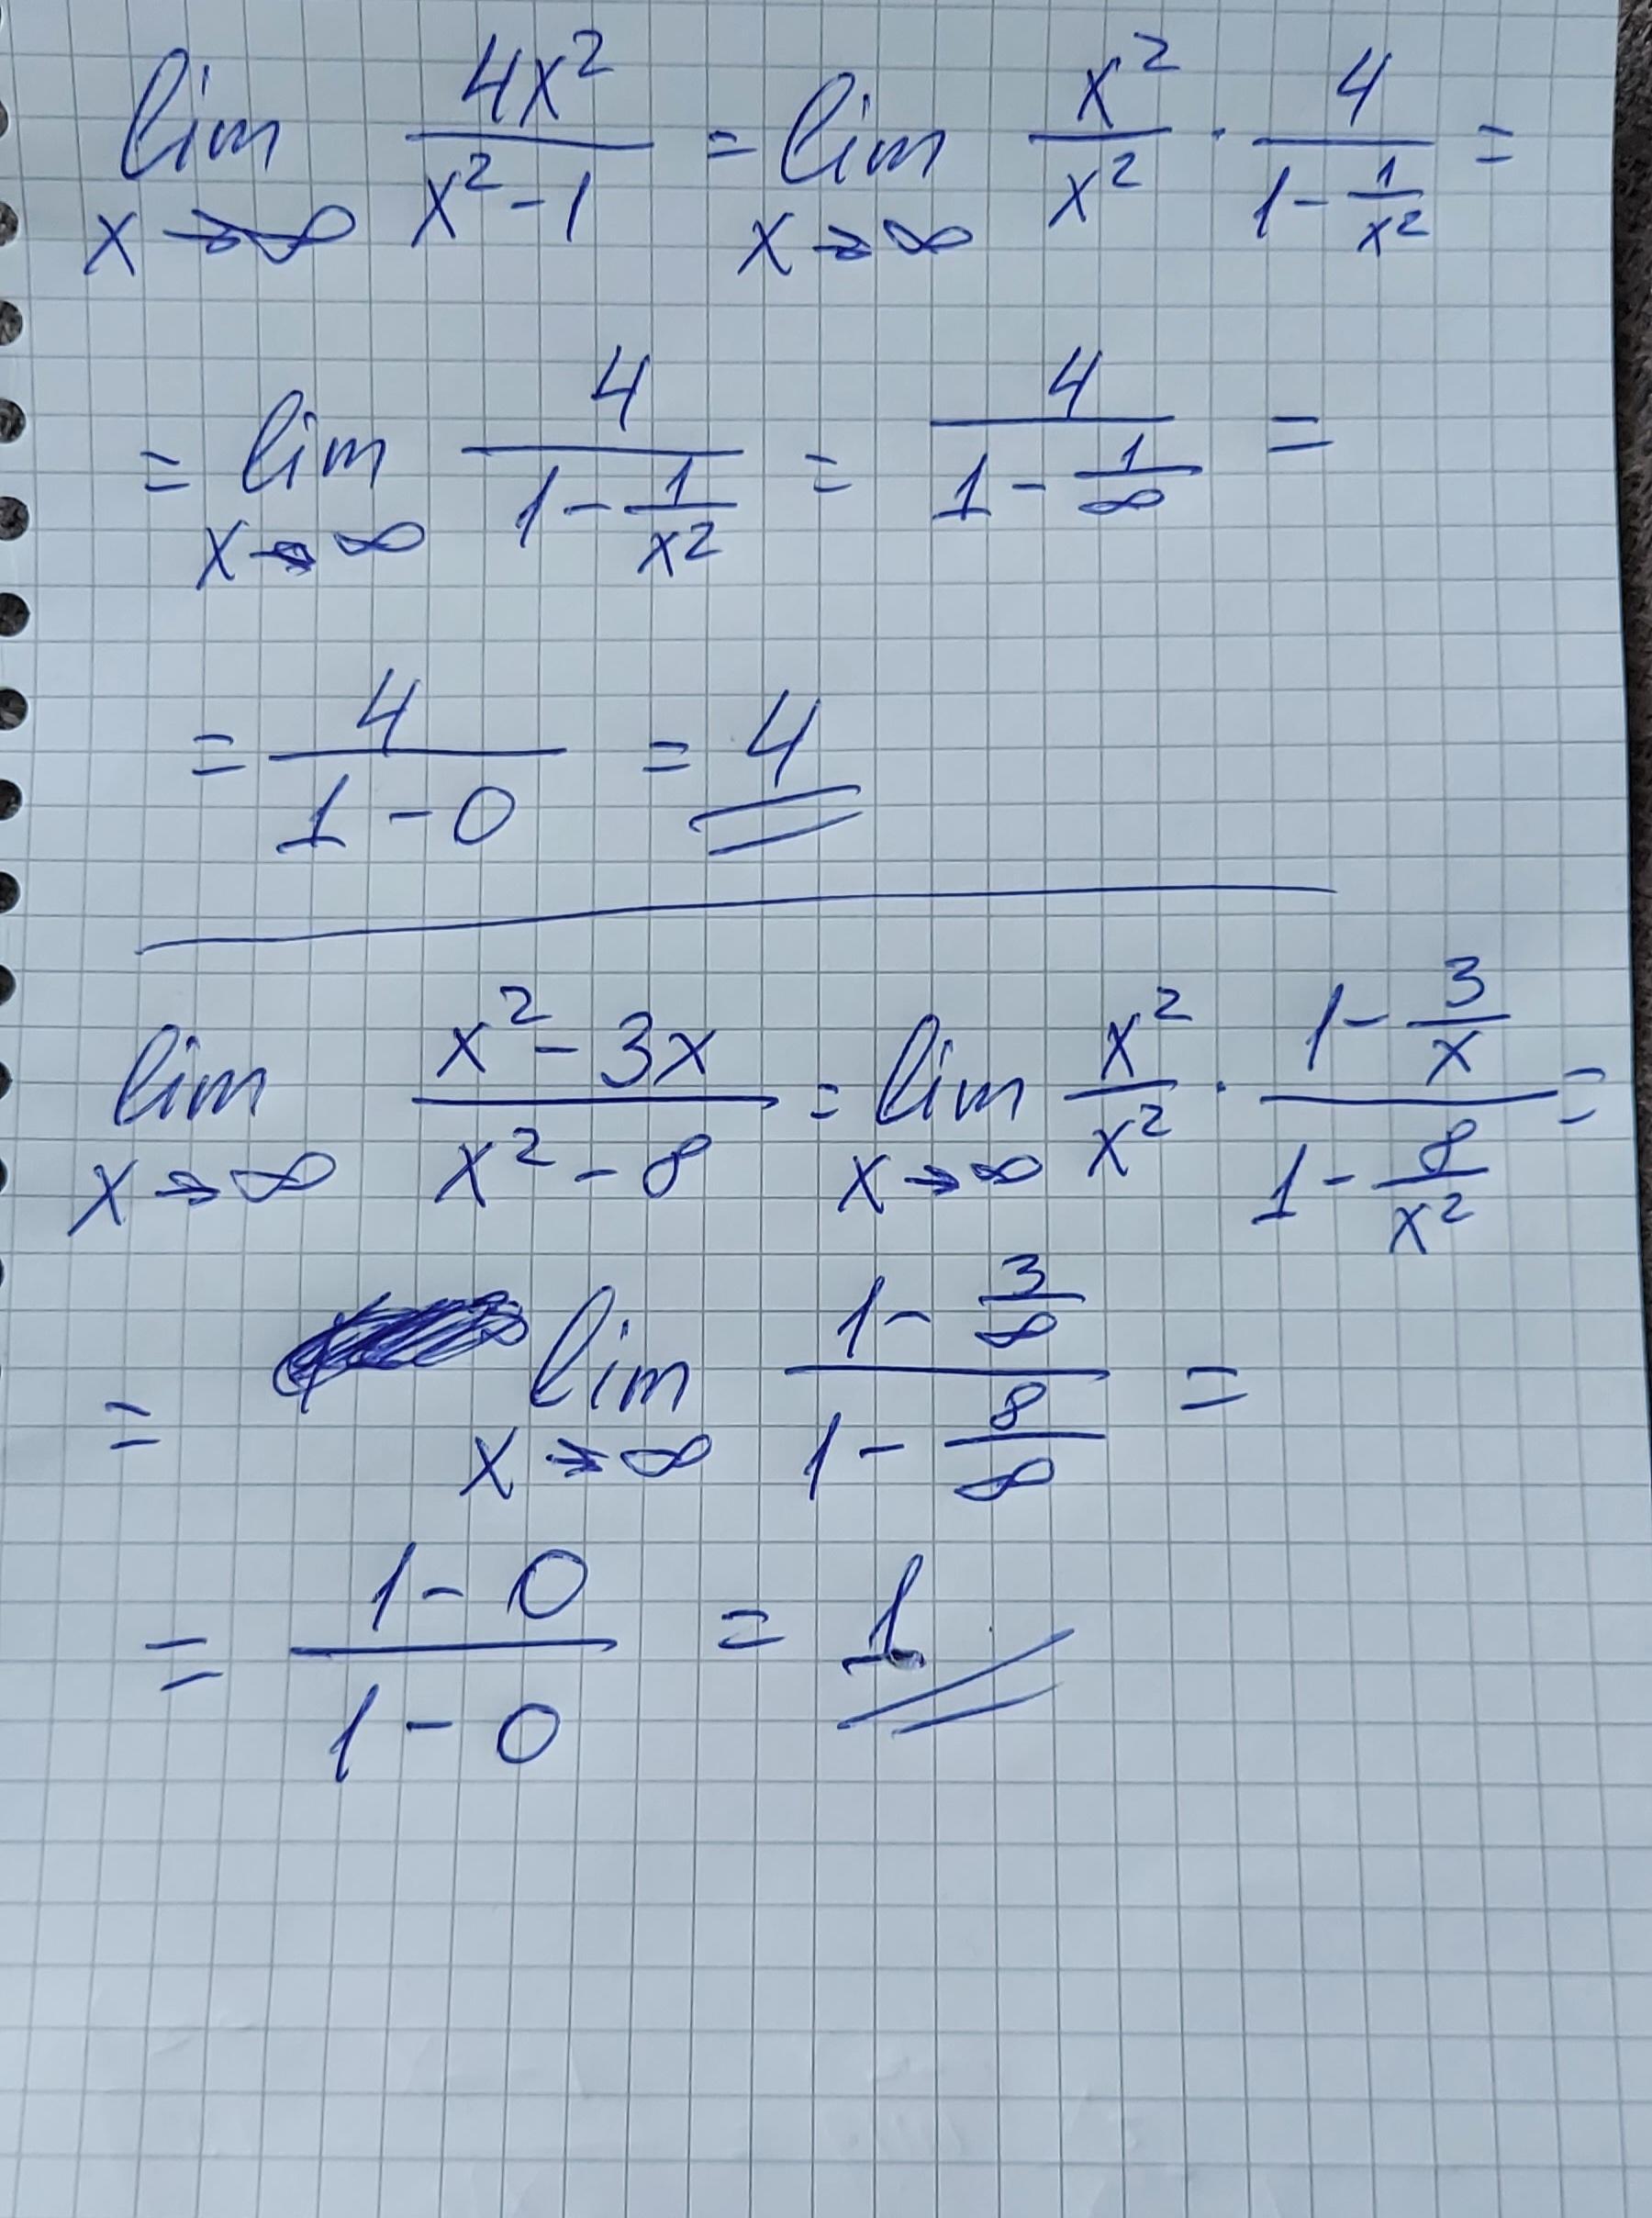 lim x→∞ 4x²/(x²-1) = lim x→∞ x²/x² · 4/(1-1/x²) =
= lim x→∞ 4/(1-1/x²) = 4/(1-1/∞) =
= 4/(1-0) = 4
lim x→∞ (x²-3x)/(x²-8) = lim x→∞ x²/x² · (1-3/x)/(1-8/x²) =
= lim x→∞ (1-3/∞)/(1-8/∞) =
= (1-0)/(1-0) = 1